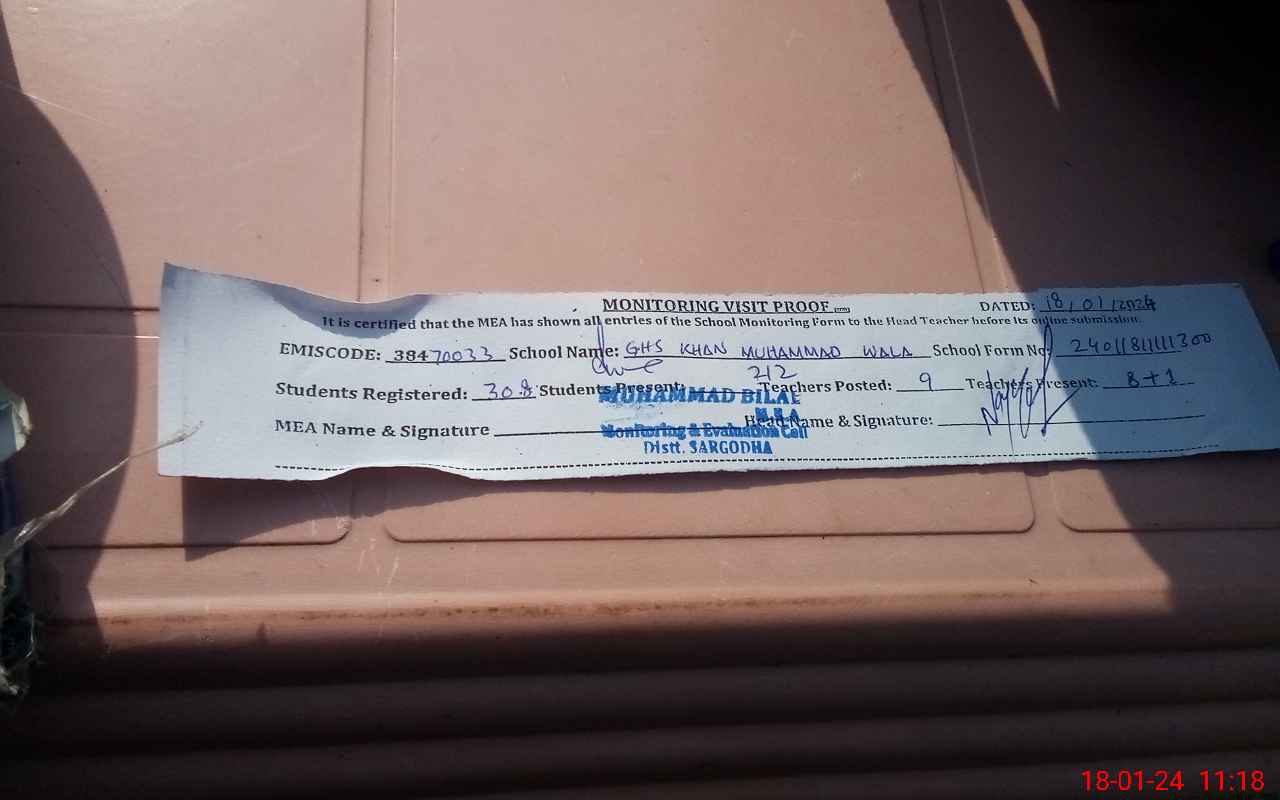 MONITORING VISIT PROOF
DATED: 18/01/2024
It is certified that the MEA has shown all entries of the School Monitoring Form to the Head Teacher before its online submission.
EMISCODE: 38470033 School Name: GHS KHAN MUHAMMAD WALA School Form No:
Students Registered: 308 Students Present: 212 Teachers Posted: 9 Teachers Present: 8+1
MEA Name & Signature Head Name & Signature:
MUHAMMAD BILAL
M.E.A
Monitoring & Evaluation Cell
Distt. SARGODHA
18-01-24 11:18